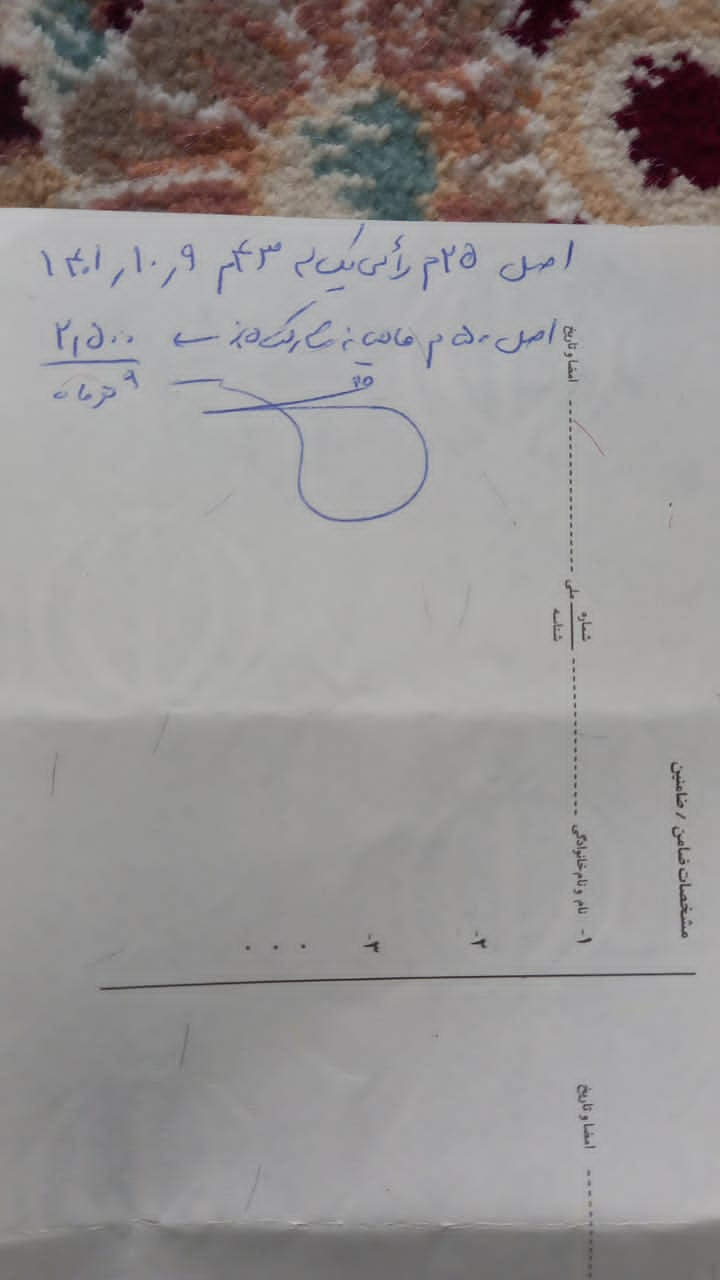 اصل ۲۵م رأس یکساله ۴۳م ۱۴۰۱٫۱۰٫۹
اصل ۵۰م ۵٪ ← ۲٫۵۰۰
۹ هر ماه
مشخصات ضامن / ضامنین
۱- نام و نام خانوادگی شماره ملی شناسه امضا و تاریخ
۲-
۳-
...
امضا و تاریخ